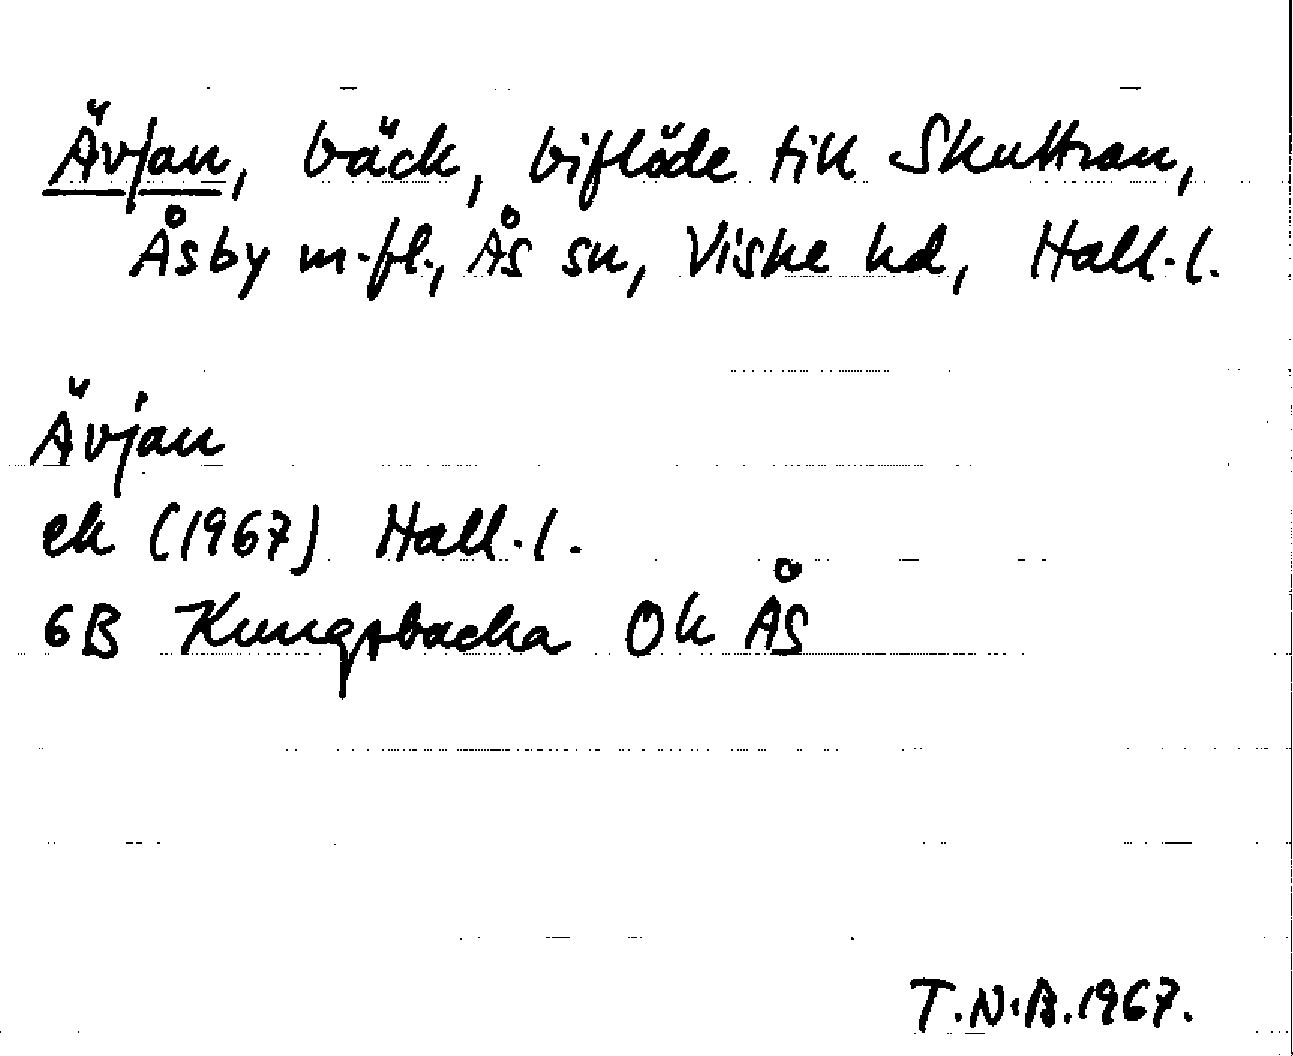 Ävjan, bäck, biflöde till Skuttran,
Åsby m.fl., Ås sn, Viske hd, Hall.l.
Ävjan
ek (1967) Hall.l.
6B Kungsbacka Ok Ås
T.N.B. 1967.